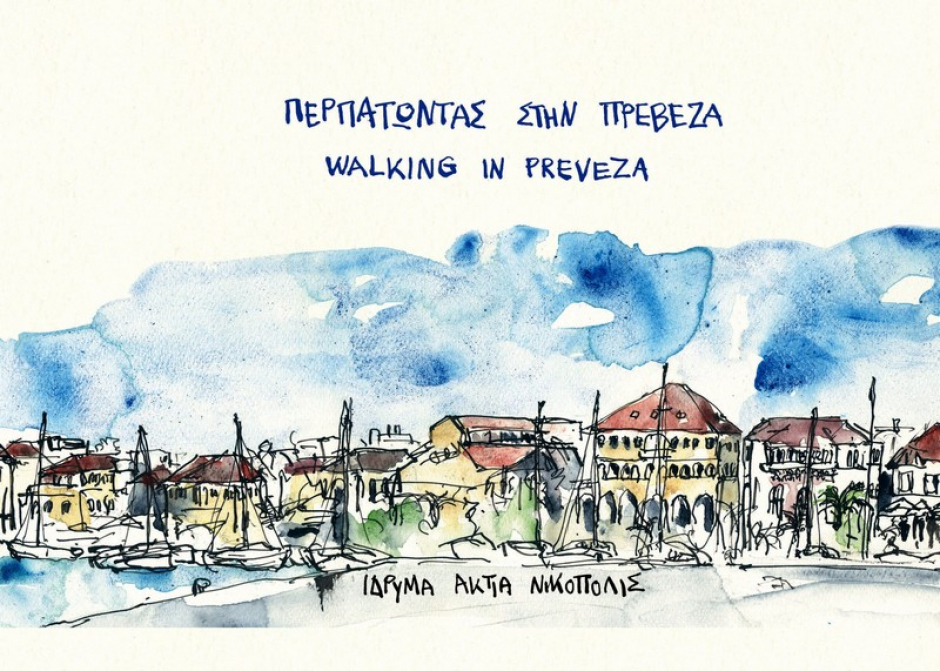 ΠΕΡΠΑΤΩΝΤΑΣ ΣΤΗΝ ΠΡΕΒΕΖΑ
WALKING IN PREVEZA
ΙΔΡΥΜΑ ΑΚΤΙΑ ΝΙΚΟΠΟΛΙΣ